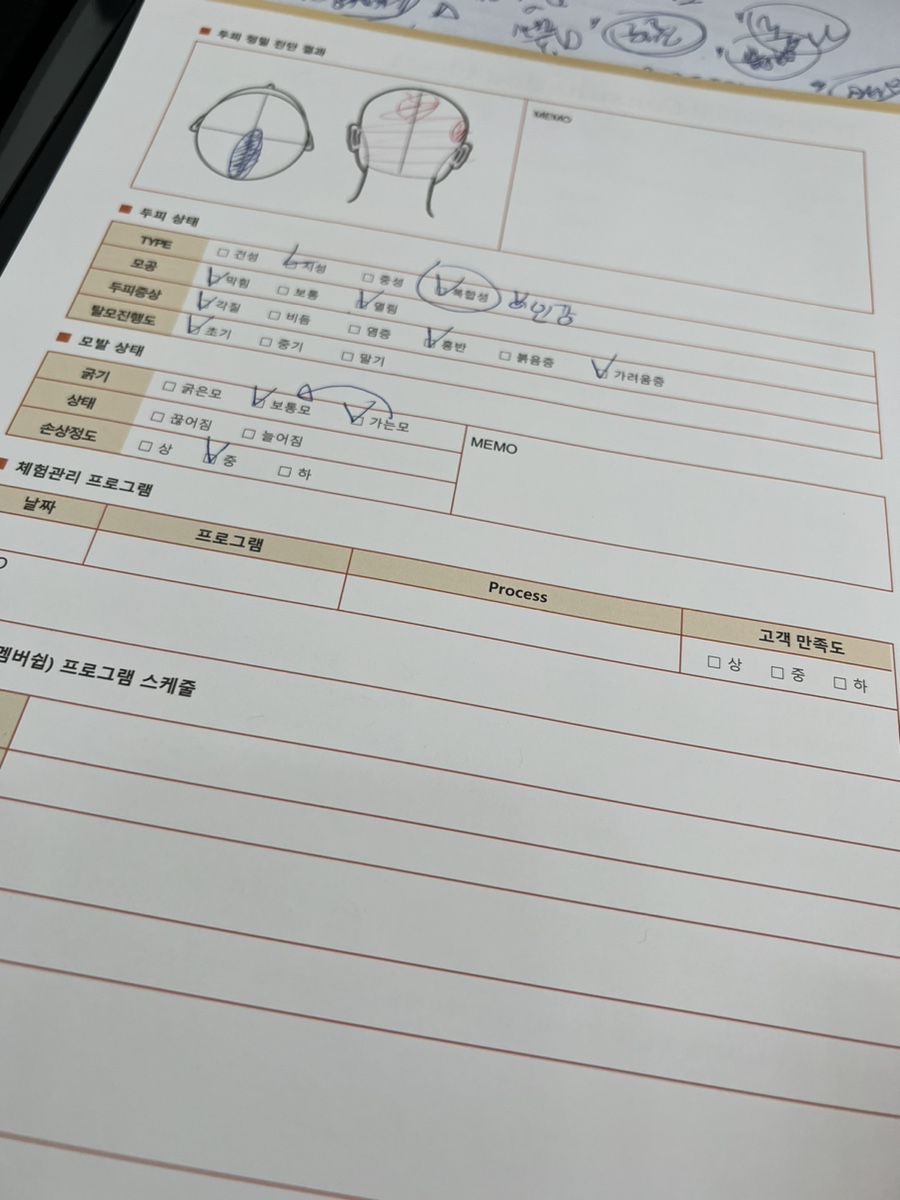 두피 정밀 진단 결과
MEMO
두피 상태
TYPE □ 건성 ☑ 지성 □ 중성 ☑ 복합성 민감
모공 ☑ 막힘 □ 보통 ☑ 열림
두피증상 ☑ 각질 □ 비듬 □ 염증 ☑ 홍반 □ 붉음증 ☑ 가려움증
탈모진행도 ☑ 초기 □ 중기 □ 말기
모발 상태
굵기 □ 굵은모 ☑ 보통모 ☑ 가는모
상태 □ 끊어짐 □ 늘어짐
손상정도 □ 상 ☑ 중 □ 하
MEMO
체험관리 프로그램
날짜 프로그램 Process 고객 만족도
□ 상 □ 중 □ 하
멤버쉽) 프로그램 스케줄